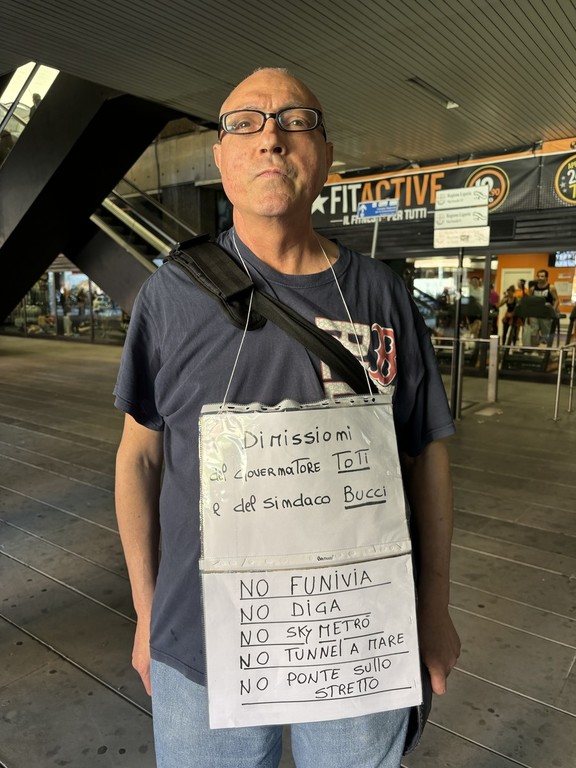 FITACTIVE
IL FITNESS PER TUTTI
Dimissioni
del GOVERNATORE TOTI
e del sindaco Bucci
NO FUNIVIA
NO DIGA
NO SKY METRO
NO TUNNEL A MARE
NO PONTE SULLO
STRETTO